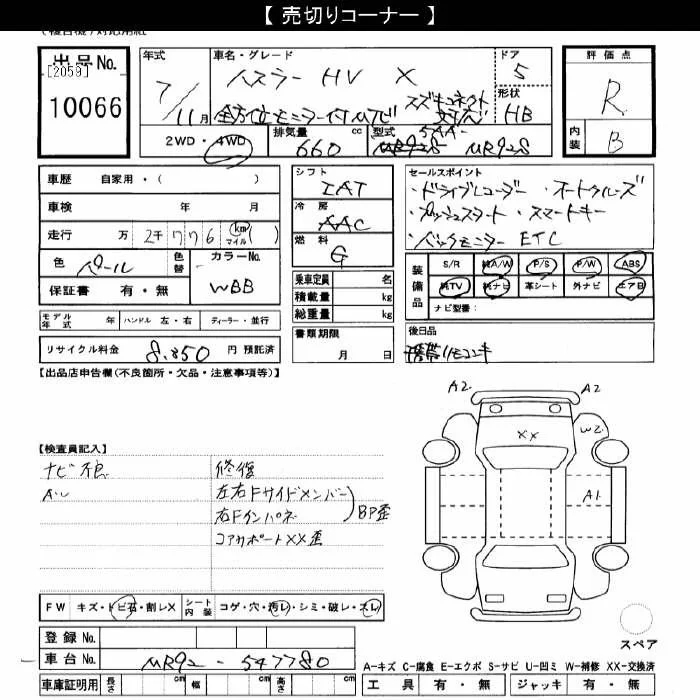 【 売切りコーナー 】
出品No.
[2059]
10066
年式
7/11月
車名・グレード
ハスラー HV X
全方位モニター付ナビ スズキコネクト対応
ドア
5
形状
HB
評価点
R
内装
B
2WD・4WD
排気量 cc
660
型式
5AA-
MR92S MR92S
車歴 自家用・( )
車検 年 月
走行 万 2千 7 7 6 km マイル ( )
色 パール
色替
カラーNo.
WBB
保証書 有・無
シフト
IAT
冷房
AAC
燃料
G
乗車定員 名
積載量 kg
総重量 kg
セールスポイント
・ドライブレコーダー ・オートクルーズ
・プッシュスタート ・スマートキー
・バックモニター ETC
装備品
S/R 純A/W P/S P/W ABS
純TV 純ナビ 革シート 外ナビ エアB
ナビ型番:
モデル年式 年 ハンドル 左・右 ディーラー・並行
書類期限
月 日
後日品
携帯リモコンキー
リサイクル料金 8,350 円 預託済
【出品店申告欄(不良箇所・欠品・注意事項等)】
【検査員記入】
ナビ不良
修復
左右Fサイドメンバー
右Fインパネ
BP歪
コアサポートXX歪
A2
A2
XX
W2
A1
FW キズ・トビ石・割レX
シート内装 コゲ・穴・汚レ・シミ・破レ・スレ
登録 No.
車台 No. MR92 - 547780
車庫証明用 長さ cm 幅 cm 高さ cm
スペア
A-キズ C-腐食 E-エクボ S-サビ U-凹ミ W-補修 XX-交換済
工具 有・無 ジャッキ 有・無